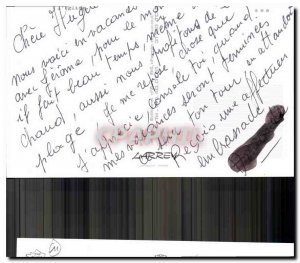 Chère
nous voici en vacances
avec Jérôme, pour le mo
il fait beau temps, même
chaud, aussi nous profitons de la
plage. je me repose chose que
j'apprécie console toi, quand
mes vacances seront terminées
ton tour en attendant
Reçois une affectueuse
embrassade